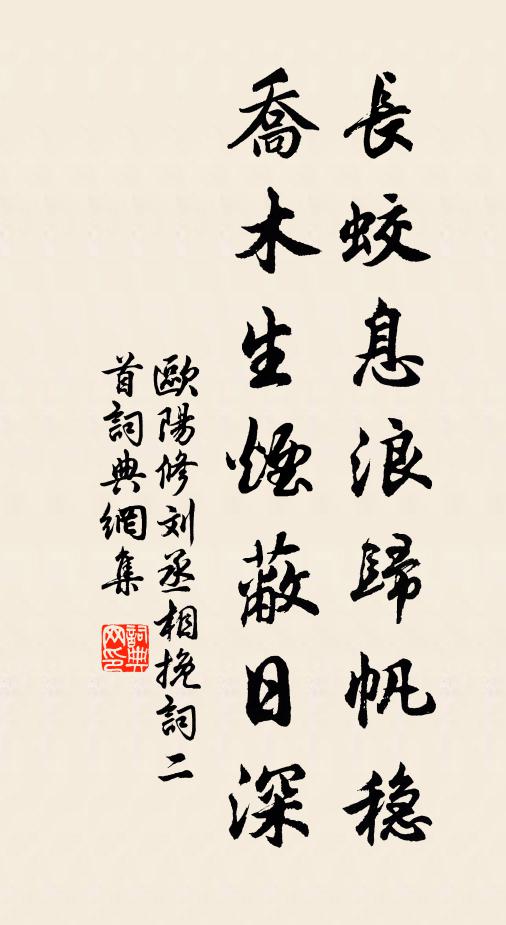 長蛟息浪歸帆穏
喬木生煙蔽日深
歐陽修刘丞相挽詞二
首詞典網集
詞典
网印